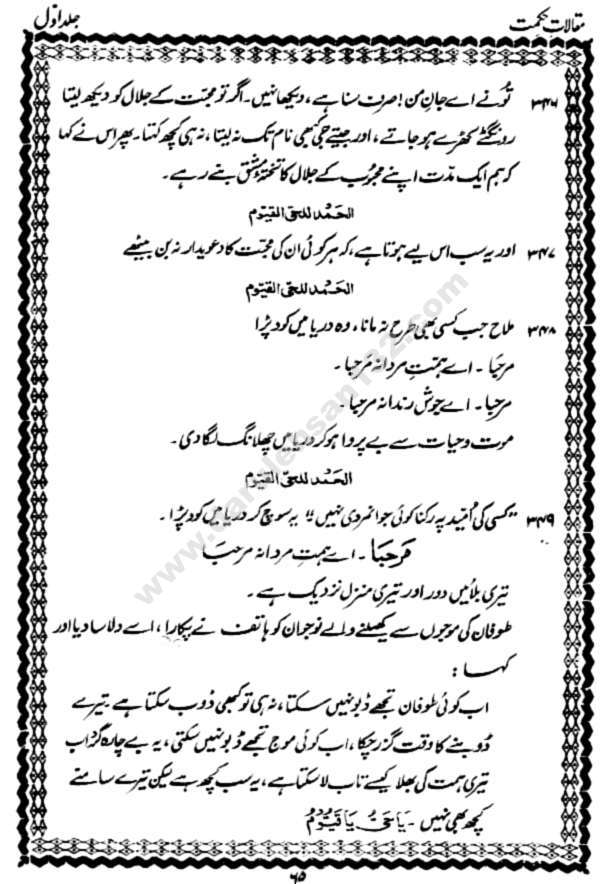 مقالاتِ حکمت
جلد اوّل
۳۴۶ تُو نے اے جانِ من! صرف سنا ہے، دیکھا نہیں۔ اگر تو محبّت کے جلال کو دیکھ لیتا
رونگٹے کھڑے ہو جاتے، اور جیتے جی کبھی نام تک نہ لیتا، نہ ہی کچھ کہتا۔ پھر اس نے کہا
کہ ہم ایک مدّت اپنے محبُوب کے جلال کا تختۂ مشق بنے رہے۔
الحَمْد للحیّ القیّوم
۳۴۷ اور یہ سب اس لیے ہوتا ہے، کہ ہر کوئی ان کی محبّت کا دعویدار نہ بن بیٹھے
الحَمْد للحیّ القیّوم
۳۴۸ ملاح جب کسی بھی طرح نہ مانا، وہ دریا میں کود پڑا
مرحَبا۔ اے ہمّتِ مردانہ مرحبا۔
مرحبا۔ اے جوشِ رندانہ مرحبا۔
موت و حیات سے بے پروا ہو کر دریا میں چھلانگ لگا دی۔
الحَمْد للحیّ القیّوم
۳۴۹ "کسی کی اُمّید پہ رکنا کوئی جوانمردی نہیں" یہ سوچ کر دریا میں کود پڑا۔
مَرحَبَا۔ اے ہمتِ مردانہ مرحبا
تیری بلائیں دور اور تیری منزل نزدیک ہے۔
طوفان کی موجوں سے کھیلنے والے نوجوان کو ہاتف نے پکارا، اسے دلاسا دیا اور
کہا:
اب کوئی طوفان تجھے ڈبو نہیں سکتا، نہ ہی تو کبھی ڈوب سکتا ہے۔ تیرے
ڈوبنے کا وقت گزر چکا، اب کوئی موج تجھے ڈبو نہیں سکتی، یہ بے چارہ گرداب
تیری ہمت کی بھلا کیسے تاب لا سکتا ہے، یہ سب کچھ ہے لیکن تیرے سامنے
کچھ بھی نہیں۔ یَا حَیُّ یَا قَیُّوْمُ
۶۵